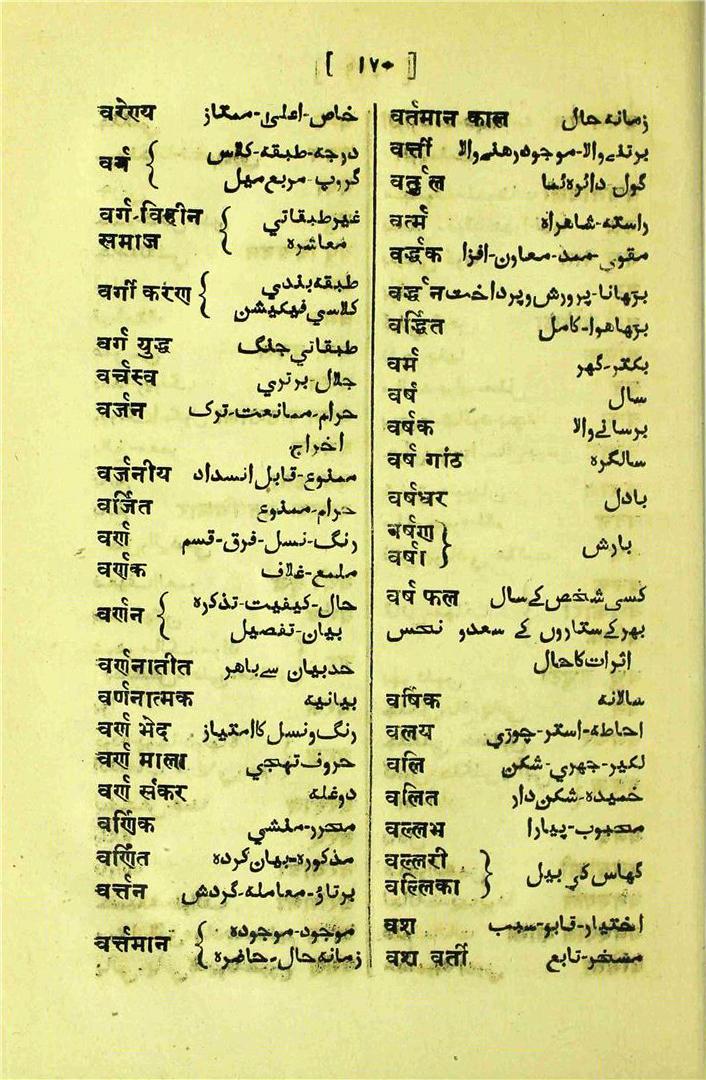 [ ۱۷۰ ]
वरेण्य خاص-اعلیٰ-ممتاز
वर्ग { درجہ-طبقہ-کلاس
گروپ-مربع میل
वर्ग-विहीन { غیر طبقاتي
समाज معاشرہ
वर्गी करण { طبقہ بندي
کلاسي فیکیشن
वर्ग युद्ध طبقاتي جنگ
वर्चस्व جلال-برتري
वर्जन حرام-ممانعت-ترک
اخراج
वर्जनीय ممنوع-قابل انسداد
वर्जित حرام-ممنوع
वर्ण رنگ-نسل-فرق-قسم
वर्णक ملمع-غلاف
वर्णन { حال-کیفیت-تذکرہ
بیان-تفصیل
वर्णनातीत حد بیان سے باھر
वर्णनात्मक بیانیہ
वर्ण भेद رنگ و نسل کا امتیاز
वर्ण माला حروف تہجي
वर्ण संकर دوغلہ
वर्णिक محرر-منشي
वर्णित مذکورہ-بیان کردہ
वर्त्तन برتاؤ-معاملہ-گردش
वर्त्तमान { موجود-موجودہ
زمانہ حال-حاضرہ
वर्तमान काल زمانہ حال
वर्त्ती برتنے والا-موجود رھنے والا
वर्तुल گول دائرہ نما
वर्त्म راستہ-شاھراہ
वर्द्धक مقوي-ممد-معاون-افزا
वर्द्धन بڑھانا-پرورش و پرداخت
वर्द्धित بڑھا ھوا-کامل
वर्म بکتر-گھر
वर्ष سال
वर्षक برسانے والا
वर्ष गांठ سالگرہ
वर्षधर بادل
वर्षण } بارش
वर्षा
वर्ष फल کسی شخص کے سال
بھر کے ستاروں کے سعد و نحس
اثرات کا حال
वर्षिक سالانہ
वलय احاطہ-استر-چوڑي
वलि لکیر-جھري-شکن
वलित خمیدہ-شکن دار
वल्लभ محبوب-پیارا
वल्लरी } گھاس کي بیل
वल्लिका
वश اختیار-قابو-سبب
वश वर्ती مسخر-تابع